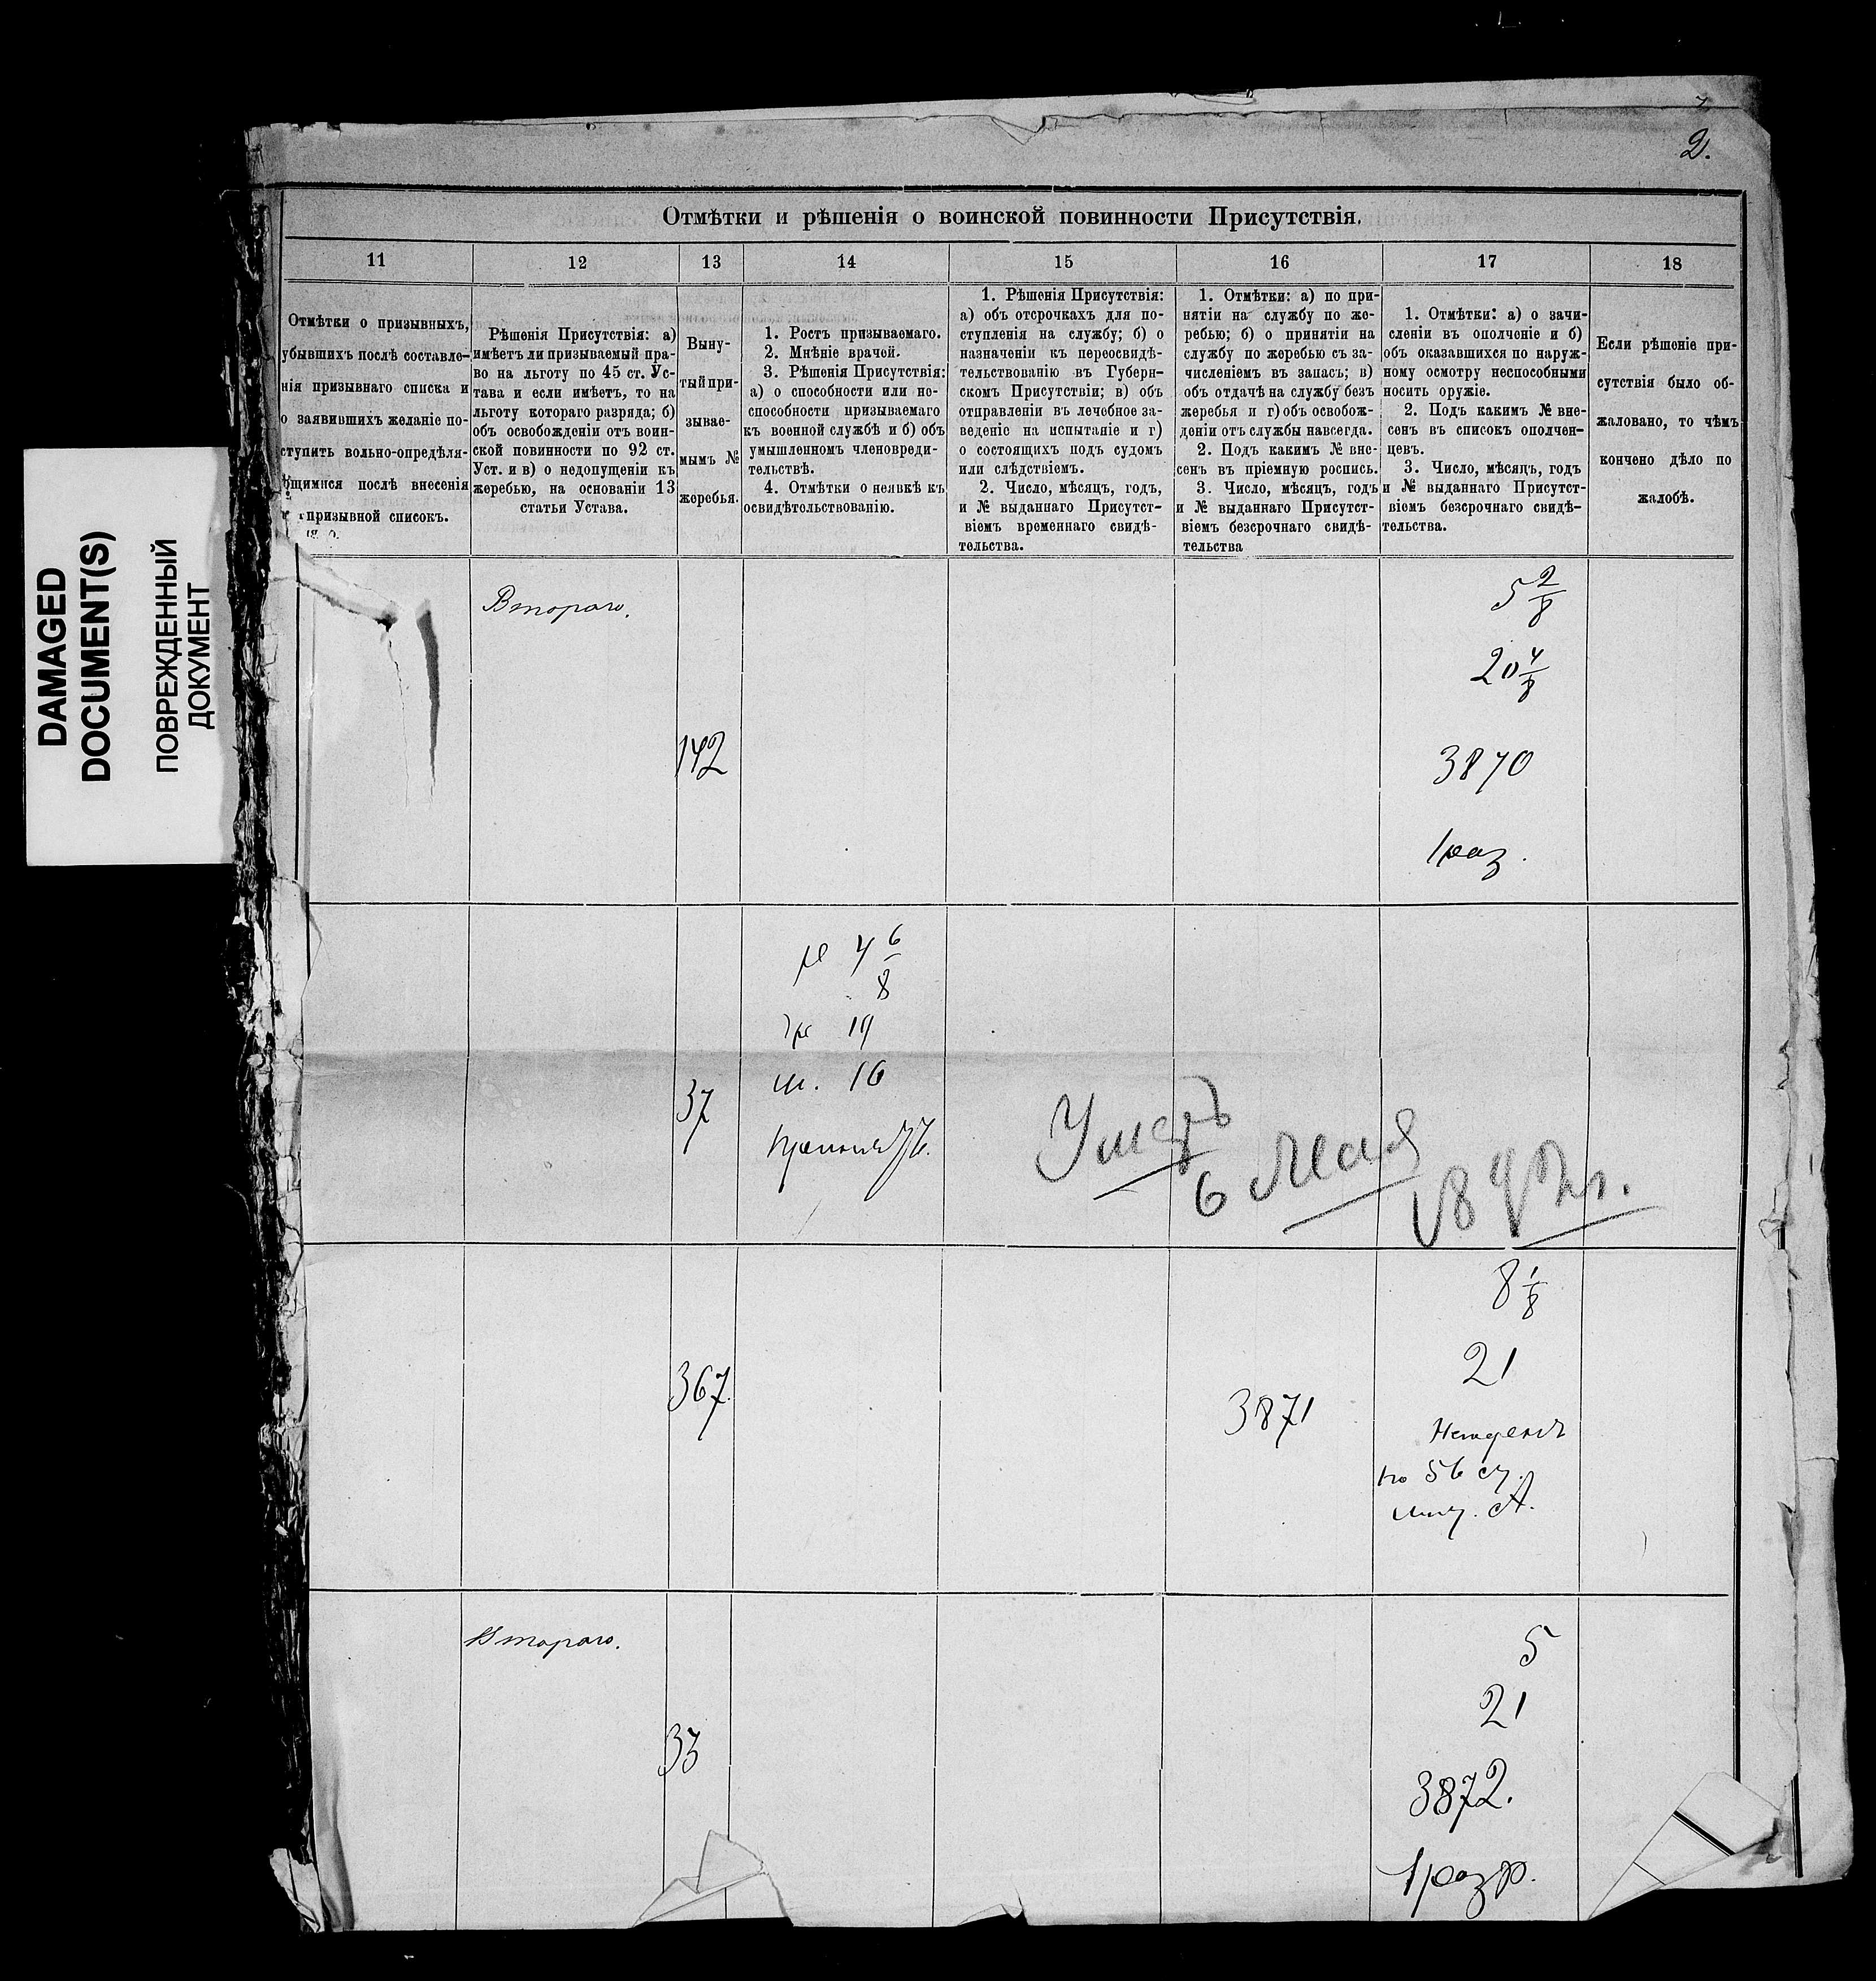 DAMAGED
DOCUMENT(S)
ПОВРЕЖДЕННЫЙ
ДОКУМЕНТ
2.
Отмѣтки и рѣшенія о воинской повинности Присутствія.
11
12
13
14
15
16
17
18
Отмѣтки о призывныхъ,
убывшихъ послѣ составле-
нія призывнаго списка и
о заявившихъ желаніе по-
ступить вольно-опредѣля-
ющимися послѣ внесенія
призывной списокъ.
Рѣшенія Присутствія: а)
имѣетъ ли призываемый пра-
во на льготу по 45 ст. Ус-
тава и если имѣетъ, то на
льготу котораго разряда; б)
объ освобожденіи отъ воин-
ской повинности по 92 ст.
Уст. и в) о недопущеніи къ
жеребью, на основаніи 13
статьи Устава.
Выну-
тый при-
зывае-
мымъ №
жеребья.
1. Ростъ призываемаго.
2. Мнѣніе врачей.
3. Рѣшенія Присутствія:
а) о способности или не-
способности призываемаго
къ военной службѣ и б) объ
умышленномъ членовреди-
тельствѣ.
4. Отмѣтки о неявкѣ къ
освидѣтельствованію.
1. Рѣшенія Присутствія:
а) объ отсрочкахъ для по-
ступленія на службу; б) о
назначеніи къ переосвидѣ-
тельствованію въ Губерн-
скомъ Присутствіи; в) объ
отправленіи въ лечебное за-
веденіе на испытаніе и г)
о состоящихъ подъ судомъ
или слѣдствіемъ.
2. Число, мѣсяцъ, годъ,
и № выданнаго Присутст-
віемъ временнаго свидѣ-
тельства.
1. Отмѣтки: а) по при-
нятіи на службу по же-
ребью; б) о принятіи на
службу по жеребью съ за-
численіемъ въ запасъ; в)
объ отдачѣ на службу безъ
жеребья и г) объ освобож-
деніи отъ службы навсегда.
2. Подъ какимъ № вне-
сенъ въ пріемную роспись.
3. Число, мѣсяцъ, годъ
и № выданнаго Присутст-
віемъ безсрочнаго свидѣ-
тельства
1. Отмѣтки: а) о зачи-
сленіи въ ополченіе и б)
объ оказавшихся по наруж-
ному осмотру неспособными
носить оружіе.
2. Подъ какимъ № вне-
сенъ въ списокъ ополчен-
цевъ.
3. Число, мѣсяцъ, годъ
и № выданнаго Присутст-
віемъ безсрочнаго свидѣ-
тельства.
Если рѣшеніе при-
сутствія было об-
жаловано, то чѣмъ
кончено дѣло по
жалобѣ.
Второго.
142
5 2/8
20 4/8
3870
1 раз.
37
р 4 6/8
гр 19
м. 16
Принятъ.
Умеръ
6 Мая
367.
3871
8 1/8
21
по 56 ст.
лит. А.
Второго.
33
5
21
3872.
1 разр.